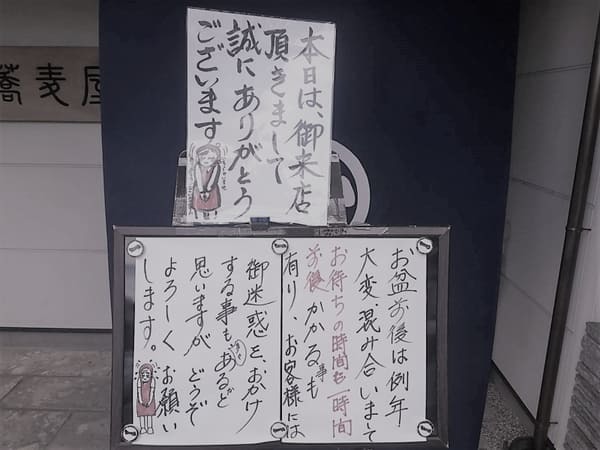 蕎麦屋
本日は、御来店
頂きまして
誠にありがとう
ございます
お盆前後は例年
大変混み合いまして
お待ちの時間も一時間
前後かかる事も
有り、お客様には
御迷惑を、おかけ
する事もあるかと
思いますが どうぞ
よろしくお願い
します。